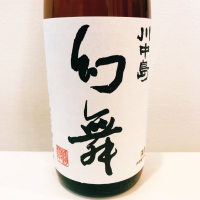 川中島
幻舞